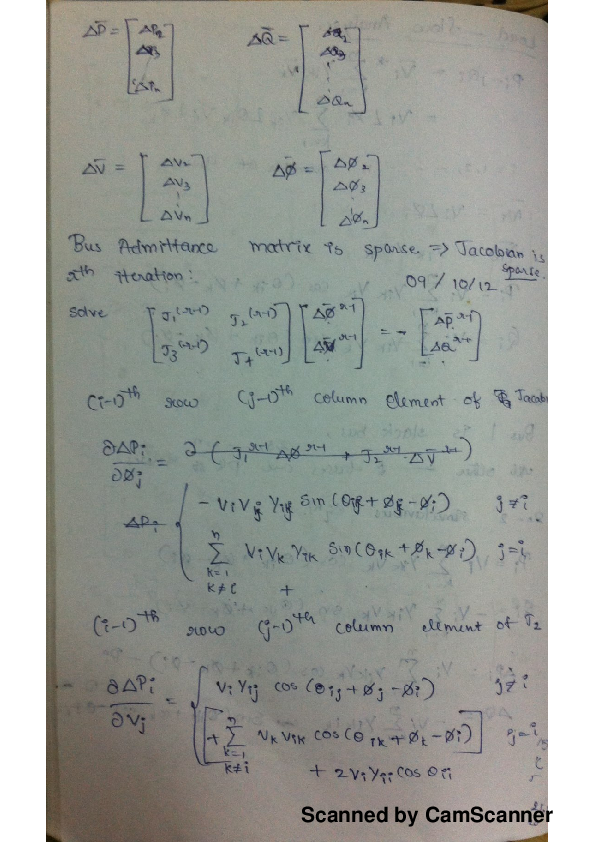 ΔP̄ = [ΔP2 ΔP3 ⋮ ΔPn] ΔQ̄ = [ΔQ2 ΔQ3 ⋮ ΔQn]
ΔV̄ = [ΔV2 ΔV3 ⋮ ΔVn] Δø̄ = [Δø2 Δø3 ⋮ Δøn]
Bus Admittance matrix is sparse. => Jacobian is sparse.
rth iteration: 09/10/12
solve [J1^(r-1) J2^(r-1) J3^(r-1) J4^(r-1)] [Δø̄^r-1 ΔV̄^r-1] = - [ΔP̄^r-1 ΔQ̄^r-1]
(i-1)th row (j-1)th column element of Jacobn
∂ΔPi/∂øj = ∂ ( J1^r-1 Δø^r-1 + J2^r-1 ΔV̄^r-1 )
ΔPi { - Vi Vj Yij sin (θij + øj - øi) j ≠ i
Σ k=1 k≠i n Vi Vk Yik sin (θik + øk - øi) j = i
+
(i-1)th row (j-1)th column element of J2
∂ΔPi/∂Vj = { Vi Yij cos (θij + øj - øi) j ≠ i
[+ Σ k=1 k≠i n Vk Yik cos (θik + øk - øi)] j = i
+ 2 Vi Yii cos θii
Scanned by CamScanner